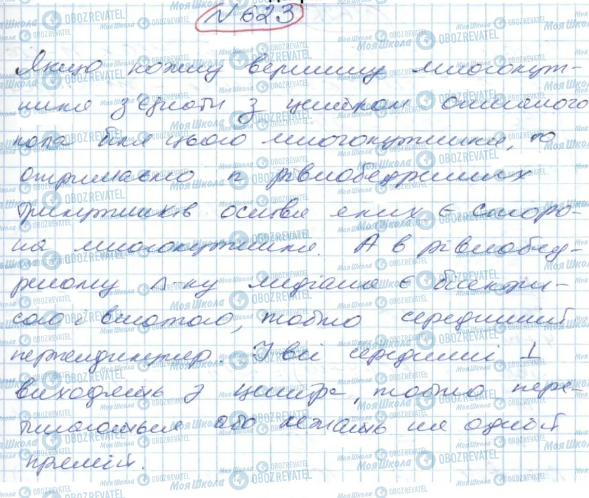 №623
Якщо кожну вершину многокут-
ника з'єднати з центром описаного
кола біля цього многокутника, то
отримаємо n рівнобедрених
трикутників основи яких є сторо-
на многокутника. А в рівнобед-
реному Δ-ку медіана є бісектри-
сою і висотою, тобто серединний
перпендикуляр. І всі серединні ⊥
виходять з центра, тобто пере-
тинаються або лежать на одній
прямій.